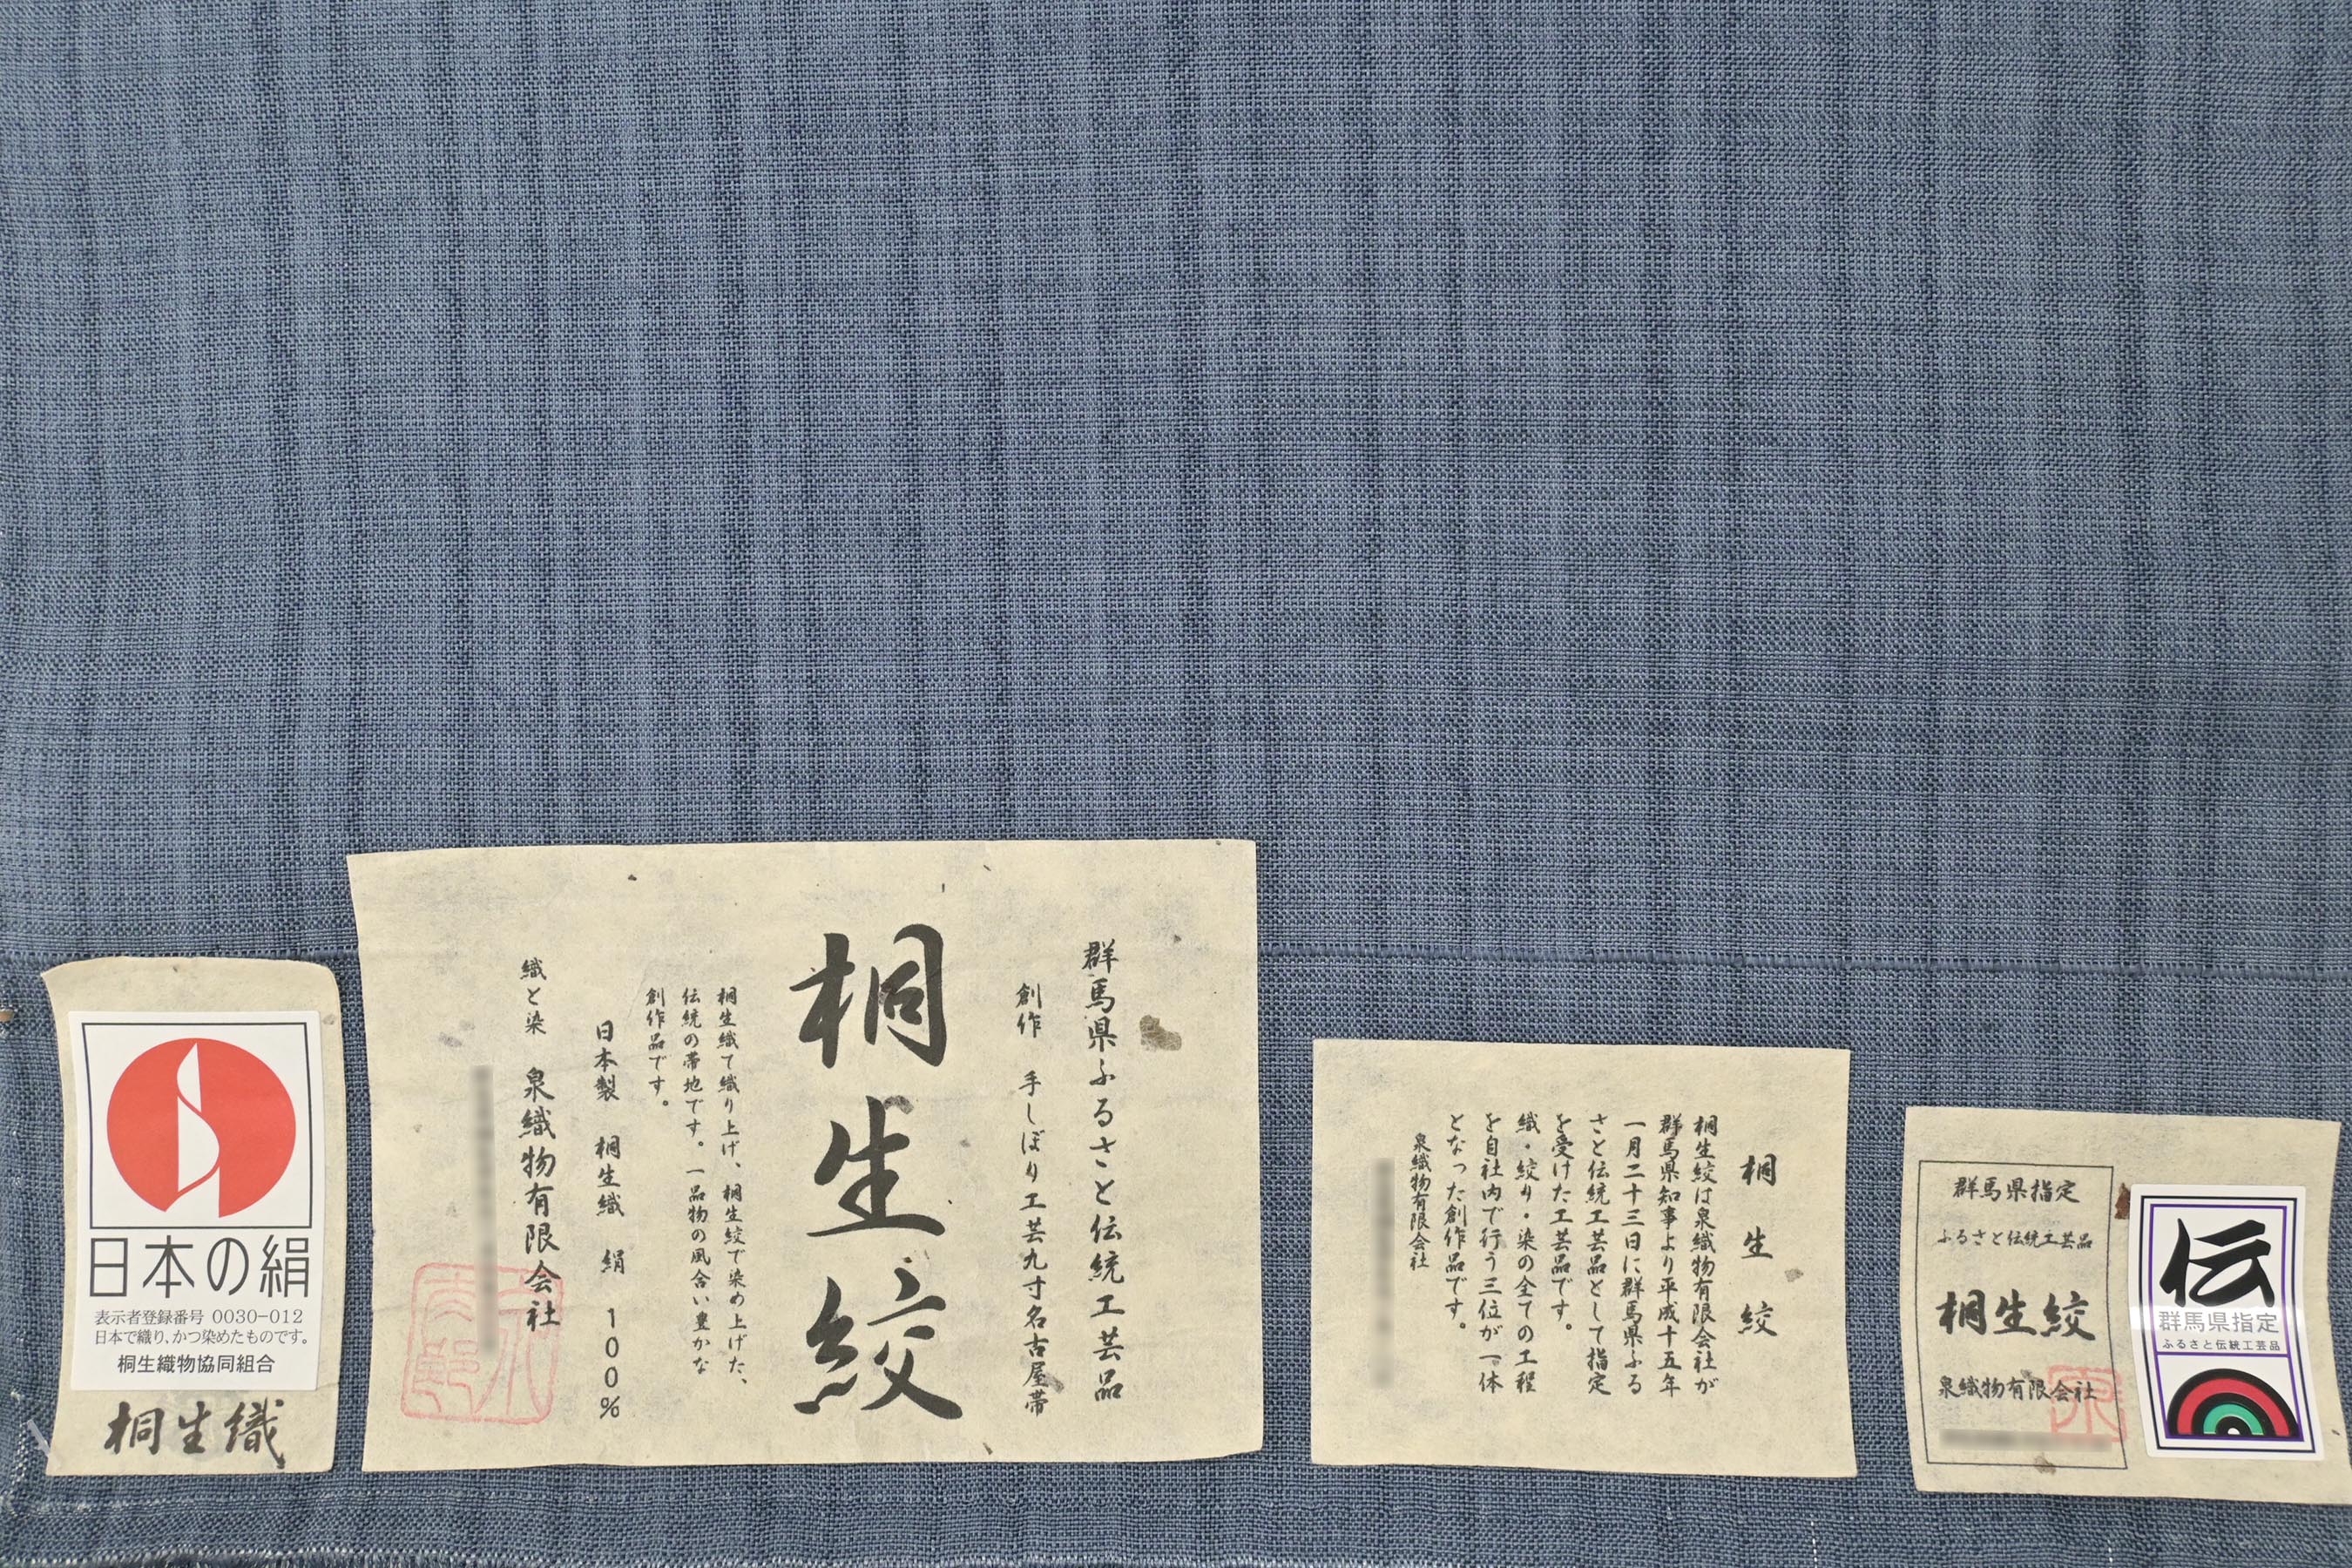 日本の絹
表示者登録番号 0030-012
日本で織り、かつ染めたものです。
桐生織物協同組合
桐生織
群馬県ふるさと伝統工芸品
創作 手しぼり工芸九寸名古屋帯
桐生絞
桐生織て織り上げ、桐生絞で染め上げた、
伝統の帯地です。一品物の風合い豊かな
創作品です。
日本製 桐生織 絹 100%
織と染 泉織物有限会社
桐生絞
桐生絞は泉織物有限会社が
群馬県知事より平成十五年
一月二十三日に群馬県ふる
さと伝統工芸品として指定
を受けた工芸品です。
織・絞り・染の全ての工程
を自社内で行う三位が一体
となった創作品です。
泉織物有限会社
群馬県指定
ふるさと伝統工芸品
桐生絞
泉織物有限会社
伝
群馬県指定
ふるさと伝統工芸品